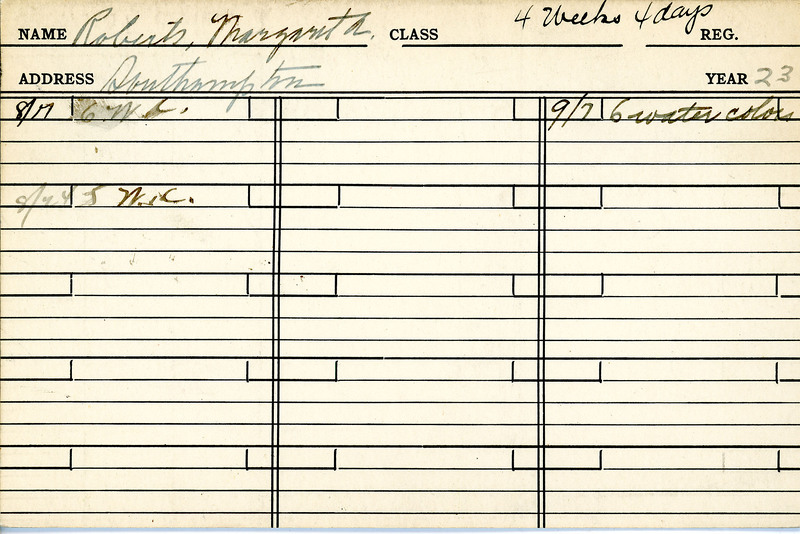 NAME Roberts, Margaret A. CLASS 4 Weeks 4 days REG.
ADDRESS Southampton YEAR 23
8/17 6 W.C. 9/7 6 water colors
8/24 5 W.C.